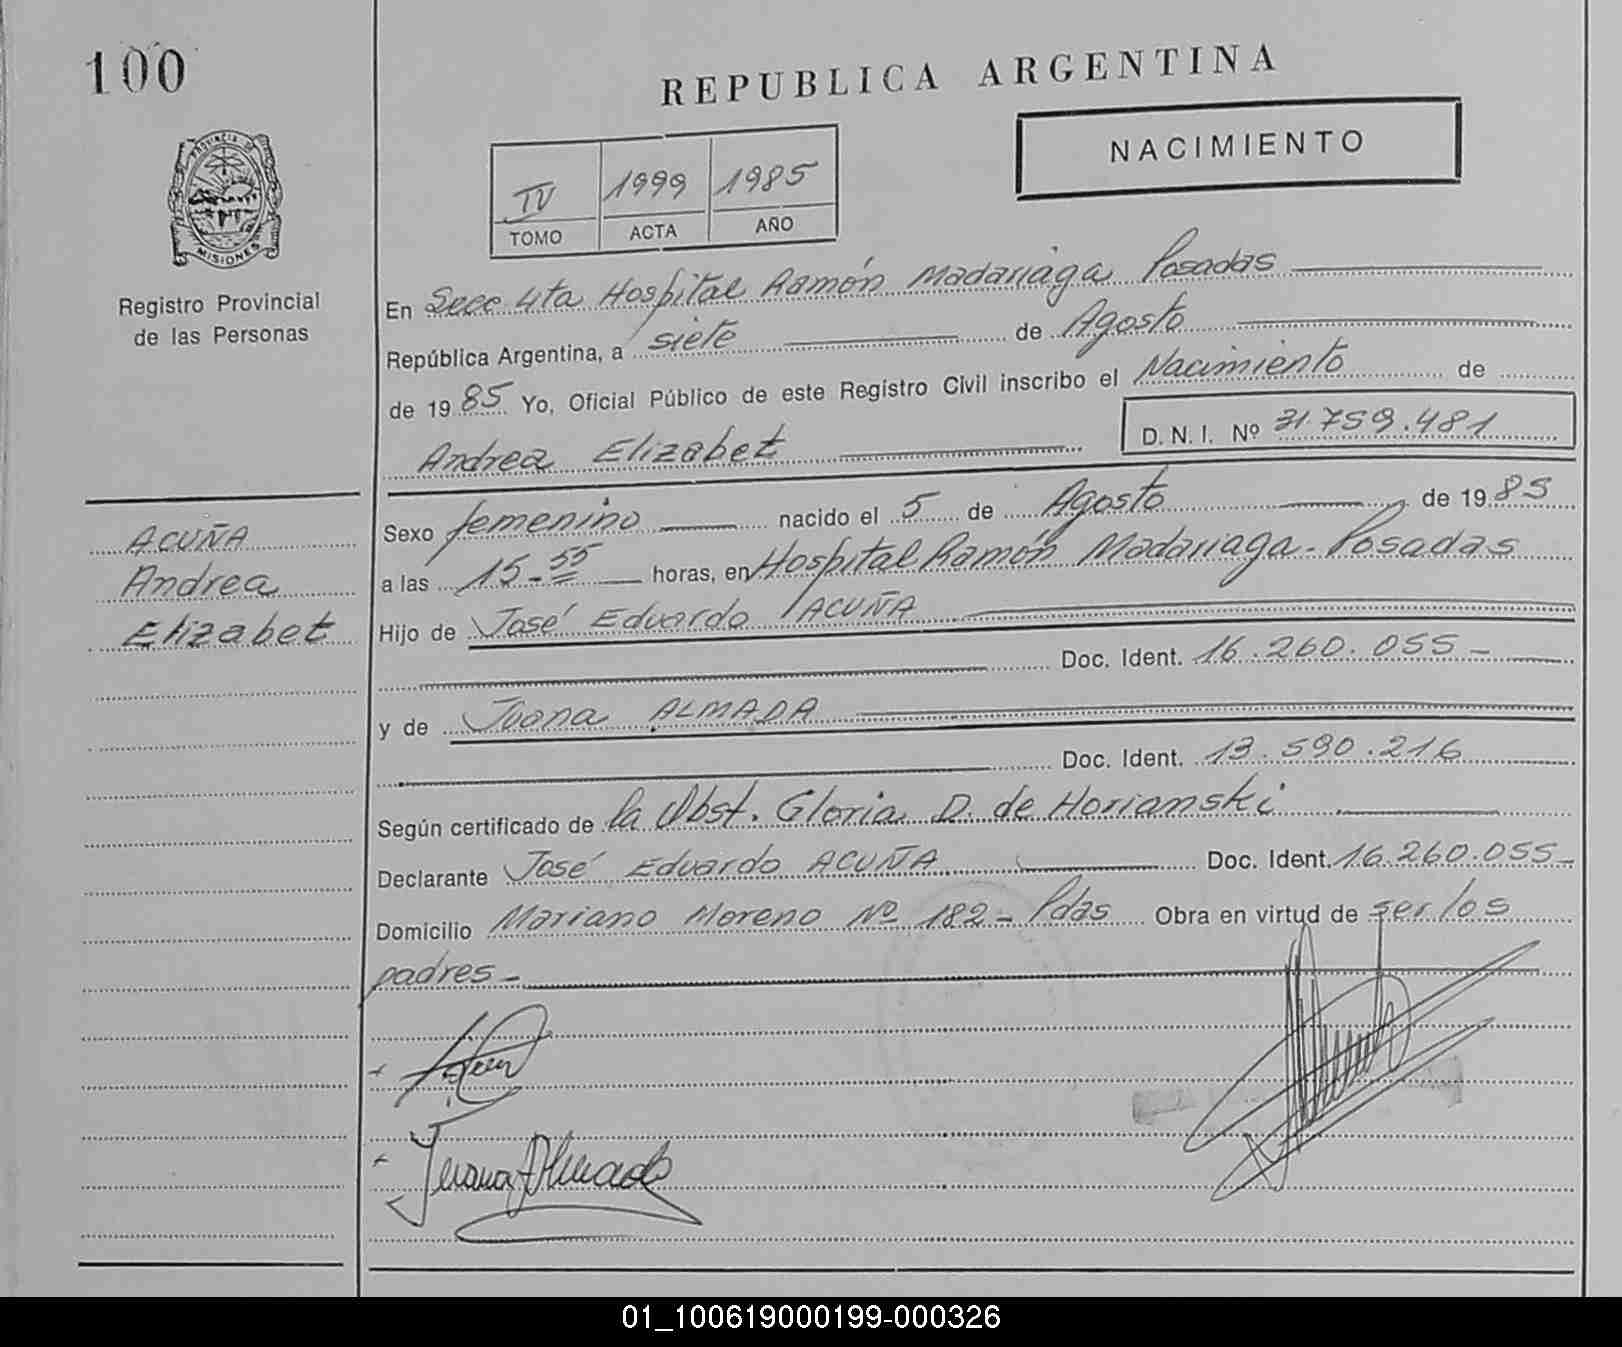 100
REPUBLICA ARGENTINA
NACIMIENTO
IV 1999 1985
TOMO ACTA AÑO
PROVINCIA DE
MISIONES
Registro Provincial
de las Personas
En Secc 4ta Hospital Ramón Madariaga Posadas
República Argentina, a siete de Agosto
de 1985 Yo, Oficial Público de este Registro Civil inscribo el Nacimiento de
Andrea Elizabet D. N. I. Nº 31.759.481
ACUÑA
Andrea
Elizabet
Sexo femenino nacido el 5 de Agosto de 1985
a las 15-55 horas, en Hospital Ramón Madariaga-Posadas
Hijo de José Eduardo ACUÑA
Doc. Ident. 16.260.055-
y de Juana ALMADA
Doc. Ident. 13.590.216
Según certificado de la Obst. Gloria D. de Horianski
Declarante José Eduardo ACUÑA Doc. Ident. 16.260.055-
Domicilio Mariano Moreno Nº 182- Pdas Obra en virtud de ser los
padres-
Juana Almada
01_100619000199-000326